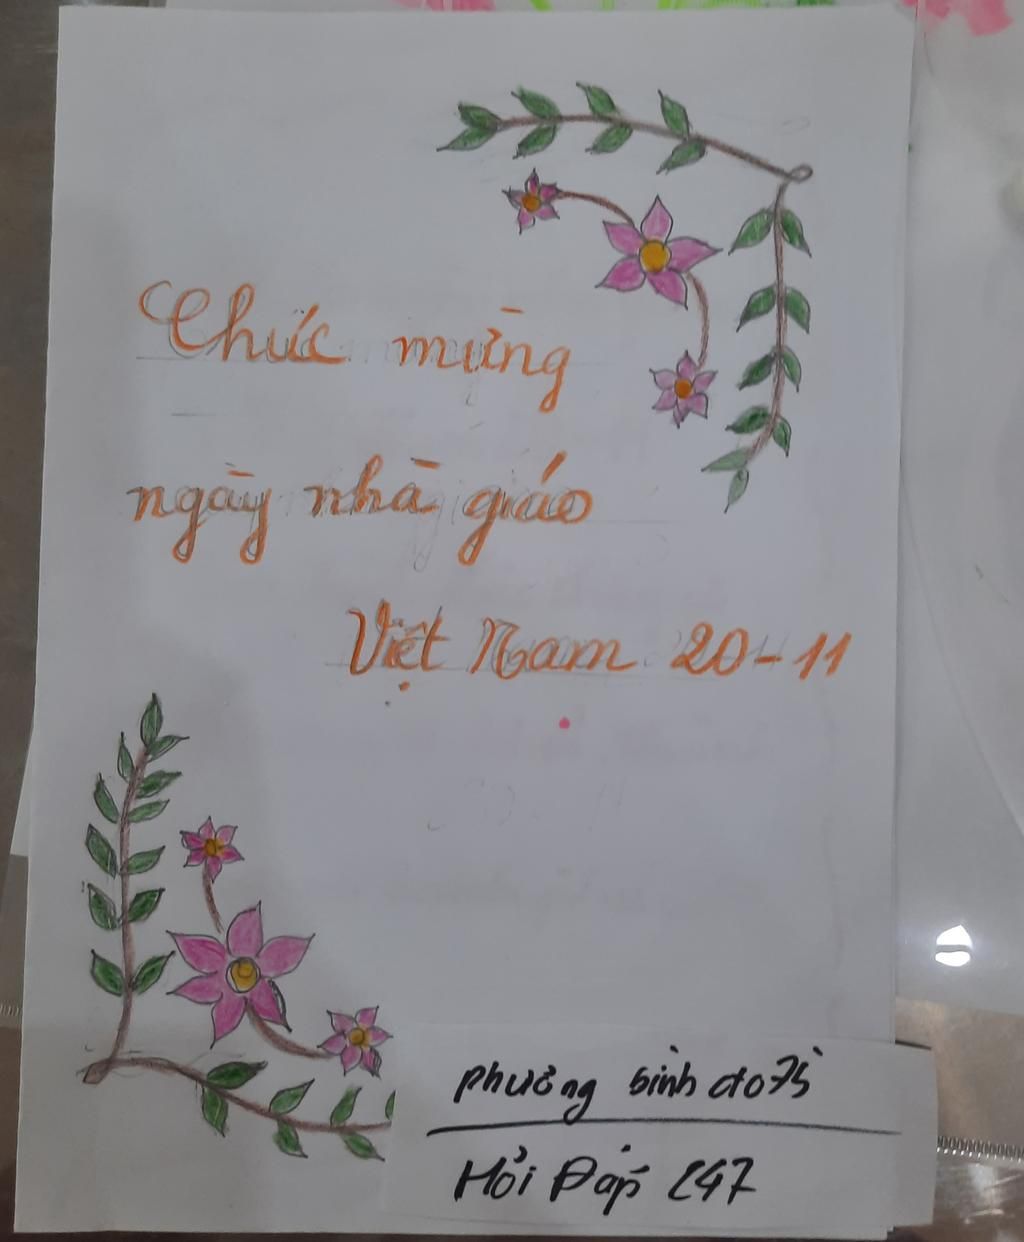 Chúc mừng
ngày nhà giáo
Việt Nam 20-11
Hỏi Đáp 247